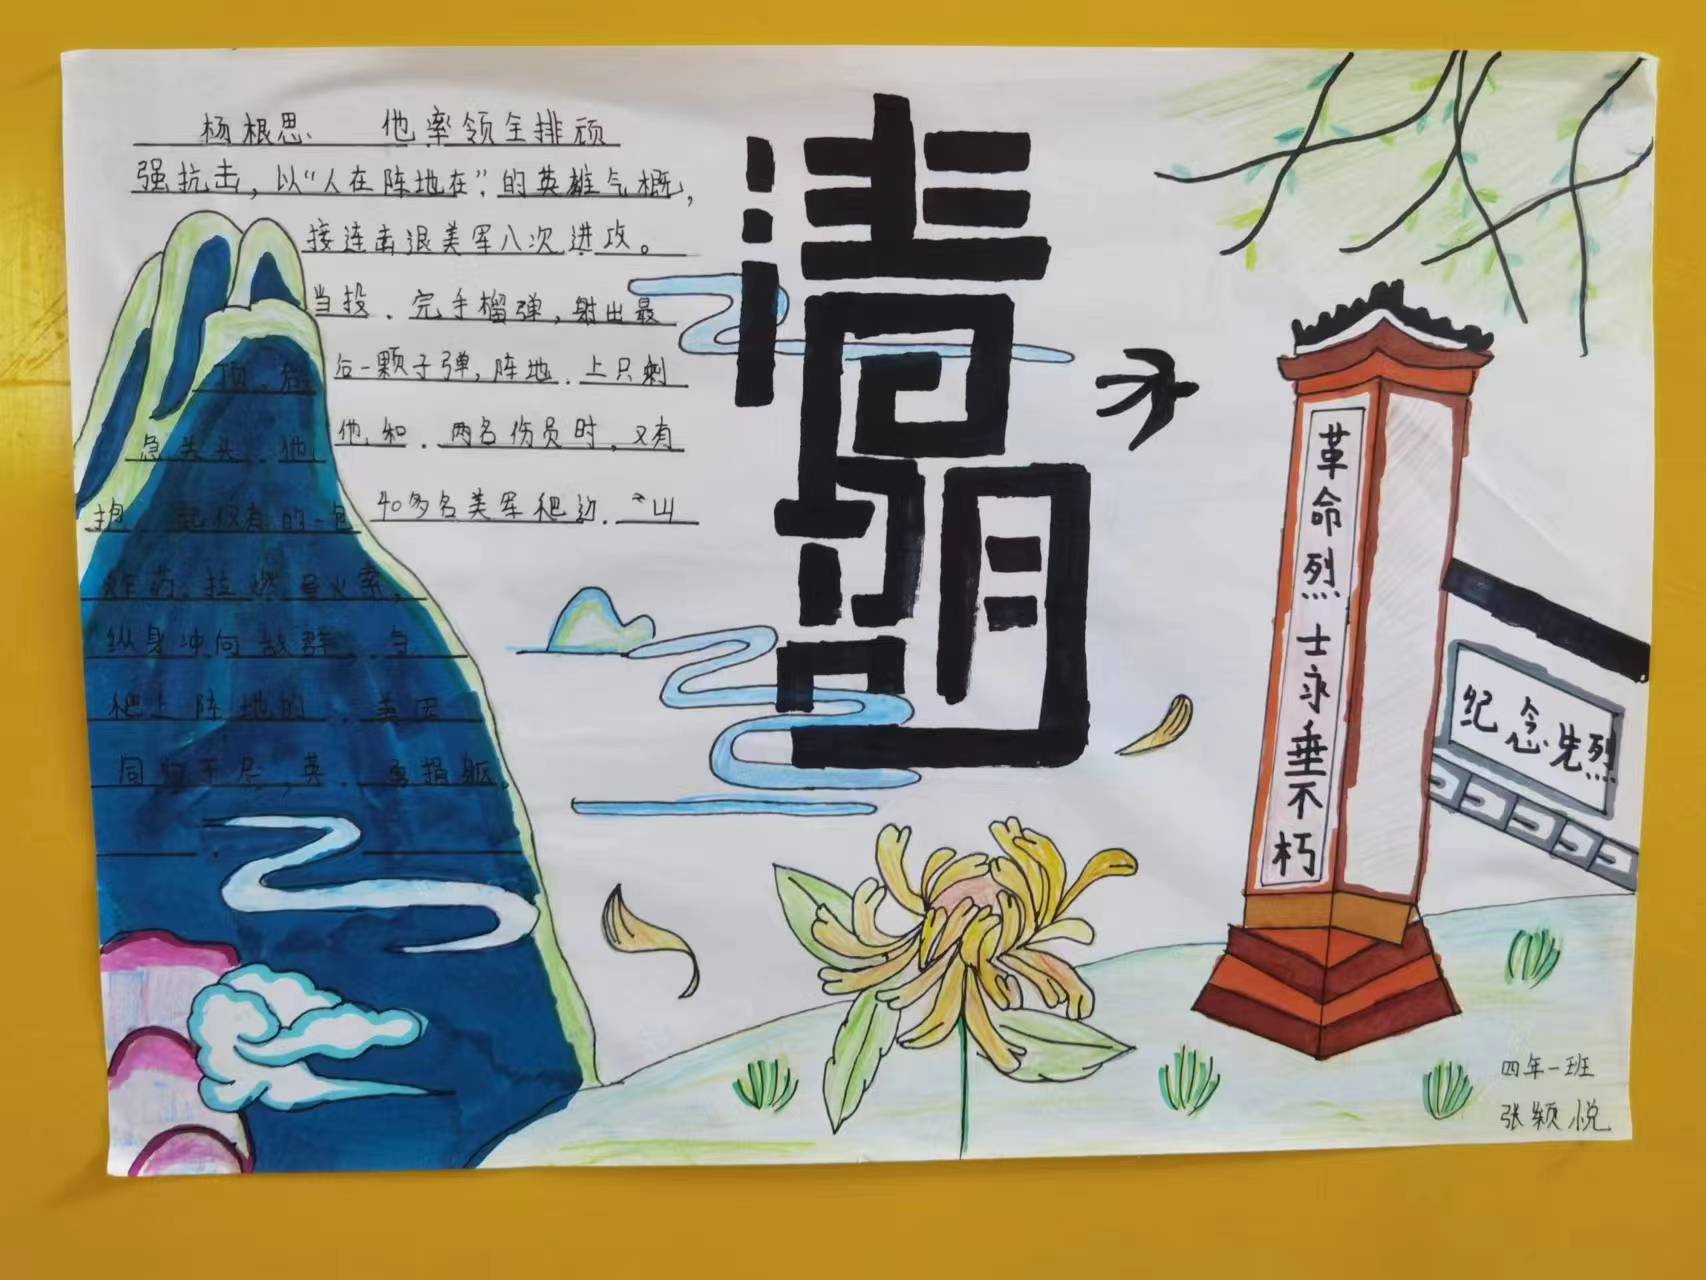 杨根思 他率领全排顽
强抗击，以“人在阵地在”，的英雄气概，
接连击退美军八次进攻。
当投.完手榴弹，射出最
后一颗子弹，阵地.上只剩
他和.两名伤员时，又有
40多名美军爬近.山
顶。危
急关头，他
抱.起仅有的一包
炸药，拉燃导火索，
纵身冲向敌群，与
爬上阵地的.美军
同归于尽，英.勇捐躯
清明
革命烈士永垂不朽
纪念先烈
四年一班
张颖悦